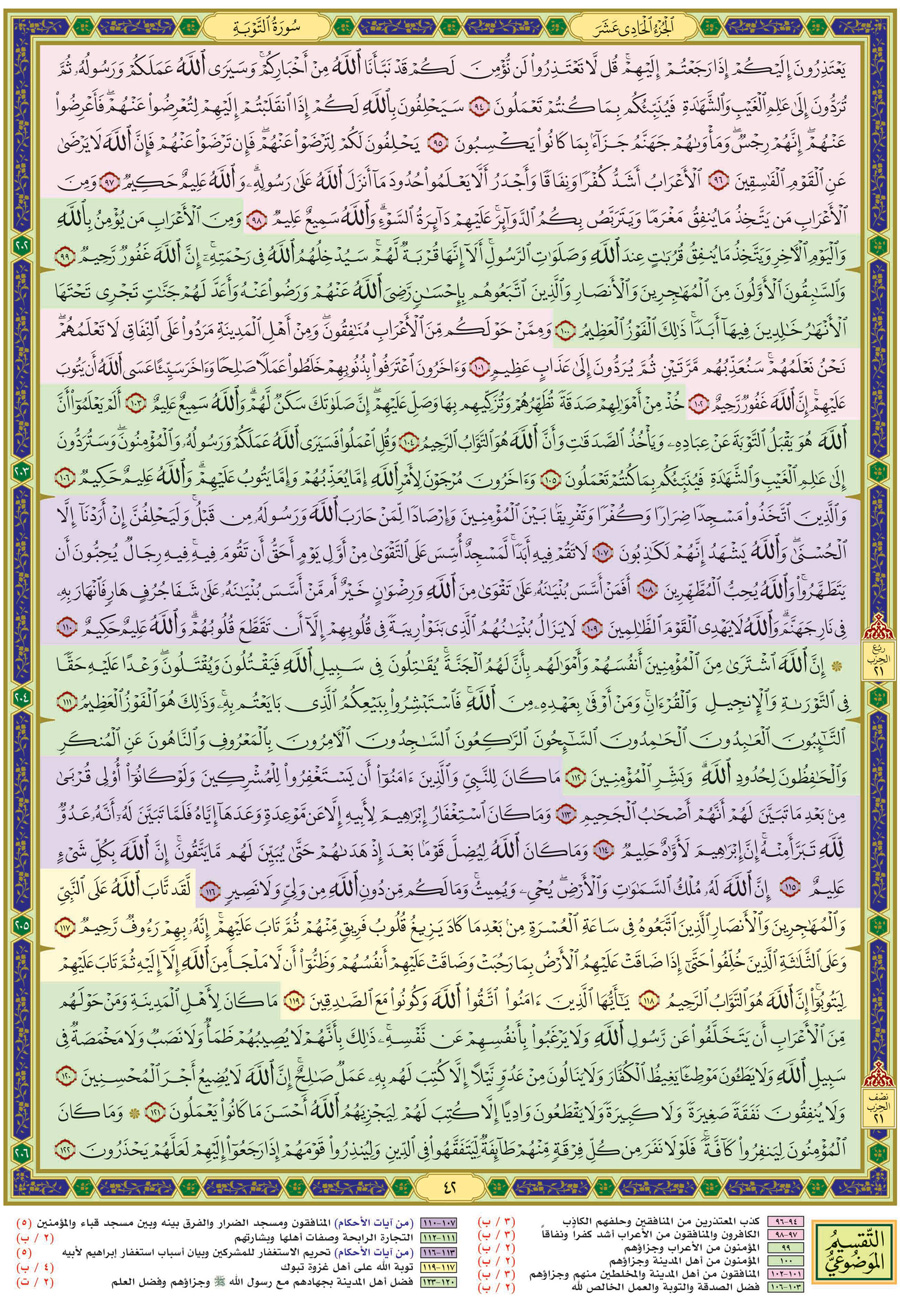 الجُزْءُ الحَادِي عَشَرَ
سُورَةُ التَّوْبَةِ
يَعْتَذِرُونَ إِلَيْكُمْ إِذَا رَجَعْتُمْ إِلَيْهِمْ ۚ قُل لَّا تَعْتَذِرُوا۟ لَن نُّؤْمِنَ لَكُمْ قَدْ نَبَّأَنَا ٱللَّهُ مِنْ أَخْبَارِكُمْ ۚ وَسَيَرَى ٱللَّهُ عَمَلَكُمْ وَرَسُولُهُۥ ثُمَّ
تُرَدُّونَ إِلَىٰ عَٰلِمِ ٱلْغَيْبِ وَٱلشَّهَٰدَةِ فَيُنَبِّئُكُم بِمَا كُنتُمْ تَعْمَلُونَ ٩٤ سَيَحْلِفُونَ بِٱللَّهِ لَكُمْ إِذَا ٱنقَلَبْتُمْ إِلَيْهِمْ لِتُعْرِضُوا۟ عَنْهُمْ ۖ فَأَعْرِضُوا۟
عَنْهُمْ ۖ إِنَّهُمْ رِجْسٌ ۖ وَمَأْوَىٰهُمْ جَهَنَّمُ جَزَآءًۢ بِمَا كَانُوا۟ يَكْسِبُونَ ٩٥ يَحْلِفُونَ لَكُمْ لِتَرْضَوْا۟ عَنْهُمْ ۖ فَإِن تَرْضَوْا۟ عَنْهُمْ فَإِنَّ ٱللَّهَ لَا يَرْضَىٰ
عَنِ ٱلْقَوْمِ ٱلْفَٰسِقِينَ ٩٦ ٱلْأَعْرَابُ أَشَدُّ كُفْرًا وَنِفَاقًا وَأَجْدَرُ أَلَّا يَعْلَمُوا۟ حُدُودَ مَآ أَنزَلَ ٱللَّهُ عَلَىٰ رَسُولِهِۦ ۗ وَٱللَّهُ عَلِيمٌ حَكِيمٌ ٩٧ وَمِنَ
ٱلْأَعْرَابِ مَن يَتَّخِذُ مَا يُنفِقُ مَغْرَمًا وَيَتَرَبَّصُ بِكُمُ ٱلدَّوَآئِرَ ۚ عَلَيْهِمْ دَآئِرَةُ ٱلسَّوْءِ ۗ وَٱللَّهُ سَمِيعٌ عَلِيمٌ ٩٨ وَمِنَ ٱلْأَعْرَابِ مَن يُؤْمِنُ بِٱللَّهِ
وَٱلْيَوْمِ ٱلْءَاخِرِ وَيَتَّخِذُ مَا يُنفِقُ قُرُبَٰتٍ عِندَ ٱللَّهِ وَصَلَوَٰتِ ٱلرَّسُولِ ۚ أَلَآ إِنَّهَا قُرْبَةٌ لَّهُمْ ۚ سَيُدْخِلُهُمُ ٱللَّهُ فِى رَحْمَتِهِۦٓ ۗ إِنَّ ٱللَّهَ غَفُورٌ رَّحِيمٌ ٩٩
وَٱلسَّٰبِقُونَ ٱلْأَوَّلُونَ مِنَ ٱلْمُهَٰجِرِينَ وَٱلْأَنصَارِ وَٱلَّذِينَ ٱتَّبَعُوهُم بِإِحْسَٰنٍ رَّضِىَ ٱللَّهُ عَنْهُمْ وَرَضُوا۟ عَنْهُ وَأَعَدَّ لَهُمْ جَنَّٰتٍ تَجْرِى تَحْتَهَا
ٱلْأَنْهَٰرُ خَٰلِدِينَ فِيهَآ أَبَدًا ۚ ذَٰلِكَ ٱلْفَوْزُ ٱلْعَظِيمُ ١٠٠ وَمِمَّنْ حَوْلَكُم مِّنَ ٱلْأَعْرَابِ مُنَٰفِقُونَ ۖ وَمِنْ أَهْلِ ٱلْمَدِينَةِ مَرَدُوا۟ عَلَى ٱلنِّفَاقِ لَا تَعْلَمُهُمْ ۖ
نَحْنُ نَعْلَمُهُمْ ۚ سَنُعَذِّبُهُم مَّرَّتَيْنِ ثُمَّ يُرَدُّونَ إِلَىٰ عَذَابٍ عَظِيمٍ ١٠١ وَءَاخَرُونَ ٱعْتَرَفُوا۟ بِذُنُوبِهِمْ خَلَطُوا۟ عَمَلًا صَٰلِحًا وَءَاخَرَ سَيِّئًا عَسَى ٱللَّهُ أَن يَتُوبَ
عَلَيْهِمْ ۚ إِنَّ ٱللَّهَ غَفُورٌ رَّحِيمٌ ١٠٢ خُذْ مِنْ أَمْوَٰلِهِمْ صَدَقَةً تُطَهِّرُهُمْ وَتُزَكِّيهِم بِهَا وَصَلِّ عَلَيْهِمْ ۖ إِنَّ صَلَوٰتَكَ سَكَنٌ لَّهُمْ ۗ وَٱللَّهُ سَمِيعٌ عَلِيمٌ ١٠٣ أَلَمْ يَعْلَمُوٓا۟ أَنَّ
ٱللَّهَ هُوَ يَقْبَلُ ٱلتَّوْبَةَ عَنْ عِبَادِهِۦ وَيَأْخُذُ ٱلصَّدَقَٰتِ وَأَنَّ ٱللَّهَ هُوَ ٱلتَّوَّابُ ٱلرَّحِيمُ ١٠٤ وَقُلِ ٱعْمَلُوا۟ فَسَيَرَى ٱللَّهُ عَمَلَكُمْ وَرَسُولُهُۥ وَٱلْمُؤْمِنُونَ ۖ وَسَتُرَدُّونَ
إِلَىٰ عَٰلِمِ ٱلْغَيْبِ وَٱلشَّهَٰدَةِ فَيُنَبِّئُكُم بِمَا كُنتُمْ تَعْمَلُونَ ١٠٥ وَءَاخَرُونَ مُرْجَوْنَ لِأَمْرِ ٱللَّهِ إِمَّا يُعَذِّبُهُمْ وَإِمَّا يَتُوبُ عَلَيْهِمْ ۗ وَٱللَّهُ عَلِيمٌ حَكِيمٌ ١٠٦
وَٱلَّذِينَ ٱتَّخَذُوا۟ مَسْجِدًا ضِرَارًا وَكُفْرًا وَتَفْرِيقًۢا بَيْنَ ٱلْمُؤْمِنِينَ وَإِرْصَادًا لِّمَنْ حَارَبَ ٱللَّهَ وَرَسُولَهُۥ مِن قَبْلُ ۚ وَلَيَحْلِفُنَّ إِنْ أَرَدْنَآ إِلَّا
ٱلْحُسْنَىٰ ۖ وَٱللَّهُ يَشْهَدُ إِنَّهُمْ لَكَٰذِبُونَ ١٠٧ لَا تَقُمْ فِيهِ أَبَدًا ۚ لَّمَسْجِدٌ أُسِّسَ عَلَى ٱلتَّقْوَىٰ مِنْ أَوَّلِ يَوْمٍ أَحَقُّ أَن تَقُومَ فِيهِ ۚ فِيهِ رِجَالٌ يُحِبُّونَ أَن
يَتَطَهَّرُوا۟ ۚ وَٱللَّهُ يُحِبُّ ٱلْمُطَّهِّرِينَ ١٠٨ أَفَمَنْ أَسَّسَ بُنْيَٰنَهُۥ عَلَىٰ تَقْوَىٰ مِنَ ٱللَّهِ وَرِضْوَٰنٍ خَيْرٌ أَم مَّنْ أَسَّسَ بُنْيَٰنَهُۥ عَلَىٰ شَفَا جُرُفٍ هَارٍ فَٱنْهَارَ بِهِۦ
فِى نَارِ جَهَنَّمَ ۗ وَٱللَّهُ لَا يَهْدِى ٱلْقَوْمَ ٱلظَّٰلِمِينَ ١٠٩ لَا يَزَالُ بُنْيَٰنُهُمُ ٱلَّذِى بَنَوْا۟ رِيبَةً فِى قُلُوبِهِمْ إِلَّآ أَن تَقَطَّعَ قُلُوبُهُمْ ۗ وَٱللَّهُ عَلِيمٌ حَكِيمٌ ١١٠
۞ إِنَّ ٱللَّهَ ٱشْتَرَىٰ مِنَ ٱلْمُؤْمِنِينَ أَنفُسَهُمْ وَأَمْوَٰلَهُم بِأَنَّ لَهُمُ ٱلْجَنَّةَ ۚ يُقَٰتِلُونَ فِى سَبِيلِ ٱللَّهِ فَيَقْتُلُونَ وَيُقْتَلُونَ ۖ وَعْدًا عَلَيْهِ حَقًّا
فِى ٱلتَّوْرَىٰةِ وَٱلْإِنجِيلِ وَٱلْقُرْءَانِ ۚ وَمَنْ أَوْفَىٰ بِعَهْدِهِۦ مِنَ ٱللَّهِ ۚ فَٱسْتَبْشِرُوا۟ بِبَيْعِكُمُ ٱلَّذِى بَايَعْتُم بِهِۦ ۚ وَذَٰلِكَ هُوَ ٱلْفَوْزُ ٱلْعَظِيمُ ١١١
ٱلتَّٰٓئِبُونَ ٱلْعَٰبِدُونَ ٱلْحَٰمِدُونَ ٱلسَّٰٓئِحُونَ ٱلرَّٰكِعُونَ ٱلسَّٰجِدُونَ ٱلْءَامِرُونَ بِٱلْمَعْرُوفِ وَٱلنَّاهُونَ عَنِ ٱلْمُنكَرِ
وَٱلْحَٰفِظُونَ لِحُدُودِ ٱللَّهِ ۗ وَبَشِّرِ ٱلْمُؤْمِنِينَ ١١٢ مَا كَانَ لِلنَّبِىِّ وَٱلَّذِينَ ءَامَنُوٓا۟ أَن يَسْتَغْفِرُوا۟ لِلْمُشْرِكِينَ وَلَوْ كَانُوٓا۟ أُو۟لِى قُرْبَىٰ
مِنۢ بَعْدِ مَا تَبَيَّنَ لَهُمْ أَنَّهُمْ أَصْحَٰبُ ٱلْجَحِيمِ ١١٣ وَمَا كَانَ ٱسْتِغْفَارُ إِبْرَٰهِيمَ لِأَبِيهِ إِلَّا عَن مَّوْعِدَةٍ وَعَدَهَآ إِيَّاهُ فَلَمَّا تَبَيَّنَ لَهُۥٓ أَنَّهُۥ عَدُوٌّ
لِّلَّهِ تَبَرَّأَ مِنْهُ ۚ إِنَّ إِبْرَٰهِيمَ لَأَوَّٰهٌ حَلِيمٌ ١١٤ وَمَا كَانَ ٱللَّهُ لِيُضِلَّ قَوْمًۢا بَعْدَ إِذْ هَدَىٰهُمْ حَتَّىٰ يُبَيِّنَ لَهُم مَّا يَتَّقُونَ ۚ إِنَّ ٱللَّهَ بِكُلِّ شَىْءٍ
عَلِيمٌ ١١٥ إِنَّ ٱللَّهَ لَهُۥ مُلْكُ ٱلسَّمَٰوَٰتِ وَٱلْأَرْضِ ۖ يُحْىِۦ وَيُمِيتُ ۚ وَمَا لَكُم مِّن دُونِ ٱللَّهِ مِن وَلِىٍّ وَلَا نَصِيرٍ ١١٦ لَّقَد تَّابَ ٱللَّهُ عَلَى ٱلنَّبِىِّ
وَٱلْمُهَٰجِرِينَ وَٱلْأَنصَارِ ٱلَّذِينَ ٱتَّبَعُوهُ فِى سَاعَةِ ٱلْعُسْرَةِ مِنۢ بَعْدِ مَا كَادَ يَزِيغُ قُلُوبُ فَرِيقٍ مِّنْهُمْ ثُمَّ تَابَ عَلَيْهِمْ ۚ إِنَّهُۥ بِهِمْ رَءُوفٌ رَّحِيمٌ ١١٧
وَعَلَى ٱلثَّلَٰثَةِ ٱلَّذِينَ خُلِّفُوا۟ حَتَّىٰٓ إِذَا ضَاقَتْ عَلَيْهِمُ ٱلْأَرْضُ بِمَا رَحُبَتْ وَضَاقَتْ عَلَيْهِمْ أَنفُسُهُمْ وَظَنُّوٓا۟ أَن لَّا مَلْجَأَ مِنَ ٱللَّهِ إِلَّآ إِلَيْهِ ثُمَّ تَابَ عَلَيْهِمْ
لِيَتُوبُوٓا۟ ۚ إِنَّ ٱللَّهَ هُوَ ٱلتَّوَّابُ ٱلرَّحِيمُ ١١٨ يَٰٓأَيُّهَا ٱلَّذِينَ ءَامَنُوا۟ ٱتَّقُوا۟ ٱللَّهَ وَكُونُوا۟ مَعَ ٱلصَّٰدِقِينَ ١١٩ مَا كَانَ لِأَهْلِ ٱلْمَدِينَةِ وَمَنْ حَوْلَهُم
مِّنَ ٱلْأَعْرَابِ أَن يَتَخَلَّفُوا۟ عَن رَّسُولِ ٱللَّهِ وَلَا يَرْغَبُوا۟ بِأَنفُسِهِمْ عَن نَّفْسِهِۦ ۚ ذَٰلِكَ بِأَنَّهُمْ لَا يُصِيبُهُمْ ظَمَأٌ وَلَا نَصَبٌ وَلَا مَخْمَصَةٌ فِى
سَبِيلِ ٱللَّهِ وَلَا يَطَـُٔونَ مَوْطِئًا يَغِيظُ ٱلْكُفَّارَ وَلَا يَنَالُونَ مِنْ عَدُوٍّ نَّيْلًا إِلَّا كُتِبَ لَهُم بِهِۦ عَمَلٌ صَٰلِحٌ ۚ إِنَّ ٱللَّهَ لَا يُضِيعُ أَجْرَ ٱلْمُحْسِنِينَ ١٢٠
وَلَا يُنفِقُونَ نَفَقَةً صَغِيرَةً وَلَا كَبِيرَةً وَلَا يَقْطَعُونَ وَادِيًا إِلَّا كُتِبَ لَهُمْ لِيَجْزِيَهُمُ ٱللَّهُ أَحْسَنَ مَا كَانُوا۟ يَعْمَلُونَ ١٢١ ۞ وَمَا كَانَ
ٱلْمُؤْمِنُونَ لِيَنفِرُوا۟ كَآفَّةً ۚ فَلَوْلَا نَفَرَ مِن كُلِّ فِرْقَةٍ مِّنْهُمْ طَآئِفَةٌ لِّيَتَفَقَّهُوا۟ فِى ٱلدِّينِ وَلِيُنذِرُوا۟ قَوْمَهُمْ إِذَا رَجَعُوٓا۟ إِلَيْهِمْ لَعَلَّهُمْ يَحْذَرُونَ ١٢٢
رُبْعُ
الحِزْب
٢١
نِصْف
الحِزْب
٢١
٢٠٢
٢٠٣
٢٠٤
٢٠٥
٢٠٦
٤٢
التَّقسِيمُ
المَوضُوعِيُّ
٩٤-٩٦ كذب المعتذرين من المنافقين وحلفهم الكاذب (٣ / ب)
٩٧-٩٨ الكافرون والمنافقون من الأعراب أشد كفرا ونفاقاً (٣ / ب)
٩٩ المؤمنون من الأعراب وجزاؤهم (٢ / ب)
١٠٠ المؤمنون من أهل المدينة وجزاؤهم (٢ / ب)
١٠١-١٠٢ المنافقون من أهل المدينة والمخلطين منهم وجزاؤهم (٣ / ب)
١٠٣-١٠٦ فضل الصدقة والتوبة والعمل الخالص لله (٢ / ب)
١٠٧-١١٠ (من آيات الأحكام) المنافقون ومسجد الضرار والفرق بينه وبين مسجد قباء والمؤمنين (٥)
١١١-١١٢ التجارة الرابحة وصفات أهلها وبشارتهم (٢ / ب)
١١٣-١١٦ (من آيات الأحكام) تحريم الاستغفار للمشركين وبيان أسباب استغفار إبراهيم لأبيه (٥)
١١٧-١١٩ توبة الله على أهل غزوة تبوك (٤ / ب)
١٢٠-١٢٣ فضل أهل المدينة بجهادهم مع رسول الله ﷺ وجزاؤهم وفضل العلم (٢ / ت)